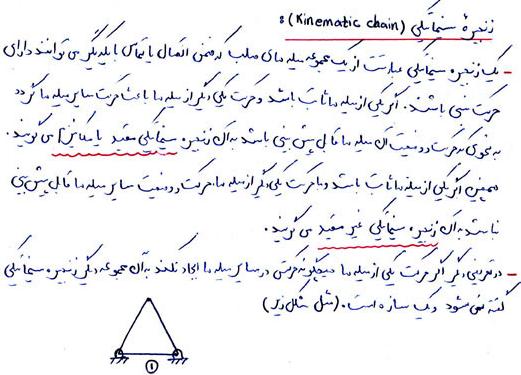 زنجیرهٔ سینماتیکی (Kinematic chain):
- یک زنجیره سینماتیکی عبارتست از یک مجموعه میله های صلب که ضمن اتصال یا تماس با یکدیگر می توانند دارای
حرکت نسبی باشند. اگر یکی از میله ها ثابت باشد و حرکت یکی دیگر از میله ها باعث حرکت سایر میله ها گردد
به نحوی که حرکت و وضعیت آن میله ها قابل پیش بینی باشد به آن زنجیره سینماتیکی مقید یا مکانیزم می گویند.
همچنین اگر یکی از میله ها ثابت باشد و با حرکت یکی دیگر از میله ها، حرکت و وضعیت سایر میله ها قابل پیش بینی
نباشد به آن زنجیره سینماتیکی غیر مقید می گویند.
- در تعریفی دیگر اگر حرکت یکی از میله ها هیچگونه حرکتی در سایر میله ها ایجاد نکند به آن مجموعه دیگر زنجیره سینماتیکی
گفته نمی شود و یک سازه است. (مثل شکل زیر)
1